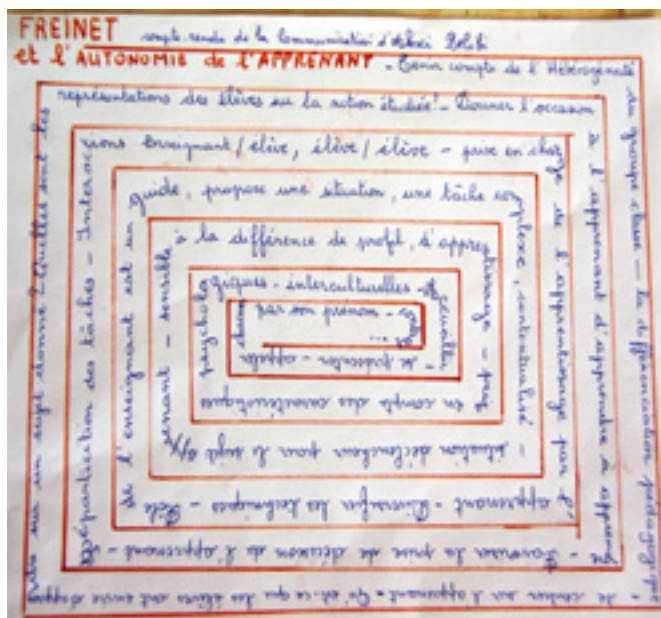 FREINET compte-rendu de la Communication
et l'AUTONOMIE de l'APPRENANT - Tenir compte de l'Hétérogénéité
du groupe classe - la différenciation pédagogique -
se centrer sur l'apprenant - Qu'est-ce que les élèves ont envie d'appren
dre sur un sujet donné ? Quelles sont les
représentations des élèves sur la notion étudiée ! - Donner l'occasion
à l'apprenant d'apprendre à apprendre
- favoriser la prise de décision de l'apprenant -
Répartition des tâches - Interac
tions Enseignant / élève, élève / élève - prise en char
ge de l'apprentissage par l'
apprenant - Diversifier les techniques - Rôle
de l'enseignant est un
guide, propose une situation, une tâche com
plexe, contextualisé
- situation déclencheur pour le sujet app
renant - sensible
à la différence de profil, d'appren
tissage - pris
en compte des caractéristiques
psycholo
giques - interculturelles - Accueillir
- se présenter - appeler
chacun
par son prénom -